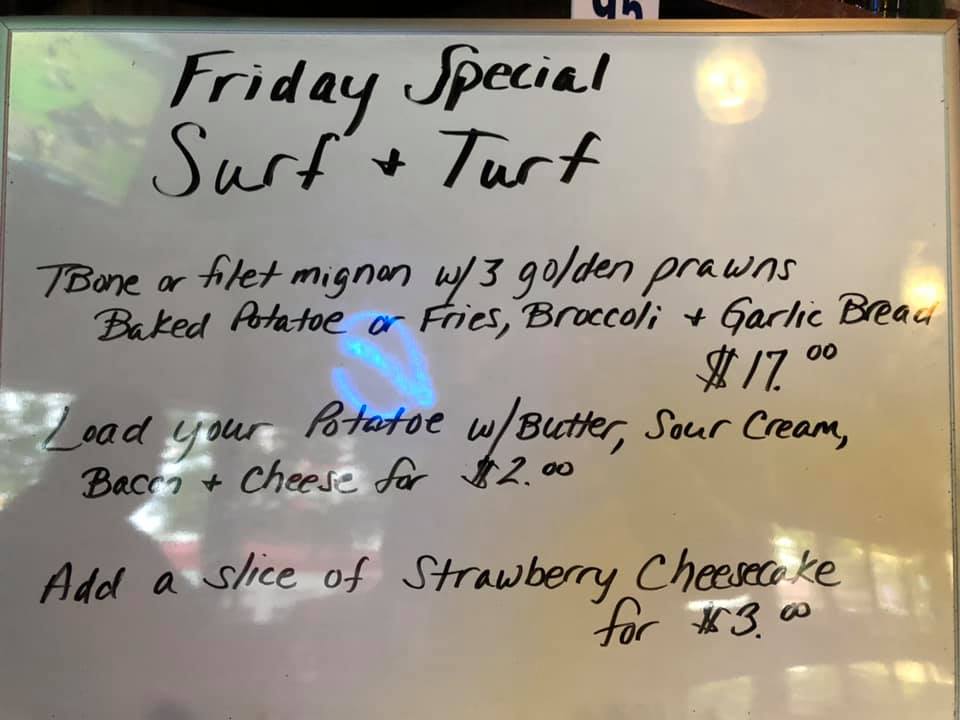 Friday Special
Surf + Turf
TBone or filet mignon w/3 golden prawns
Baked Potatoe or Fries, Broccoli + Garlic Bread
$17.00
Load your Potatoe w/Butter, Sour Cream,
Bacon + Cheese for $2.00
Add a slice of Strawberry Cheesecake
for $3.00